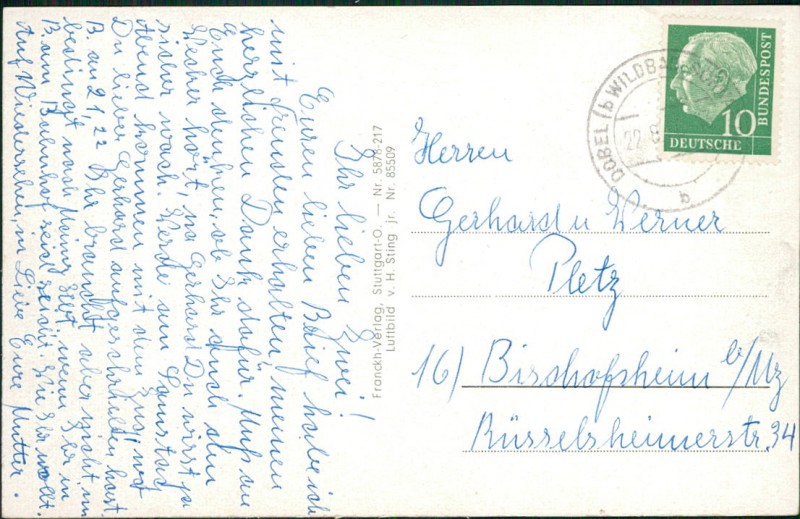 Ihr lieben Zwei!
Euren lieben Brief habe ich
mit Freuden erhalten, meinen
herzlichen Dank dafür. Muß an
Euch denken, ob Ihr auch den
Wecker hört, na Gerhard Du wirst ja
sicher wach. Werde am Samstag
Abend kommen mit dem Zug, wo
Du lieber Gerhard aufgeschrieben hast.
B. an 21,22 Ihr braucht aber nicht un
bedingt nach Mainz, wenn Ihr in
B. am Bahnhof seid. Wie Ihr wollt.
Auf Wiedersehen, in Liebe Eure Mutter.
Franckh-Verlag, Stuttgart-O. — Nr. 5878-217
Luftbild v. H. Sting jr. Nr. 85509
DOBEL (b WILDBAD
22.
b
10
DEUTSCHE
BUNDESPOST
Herren
Gerhard u Werner
Pletz
16) Bischofsheim b/Mz
Rüsselsheimerstr. 34